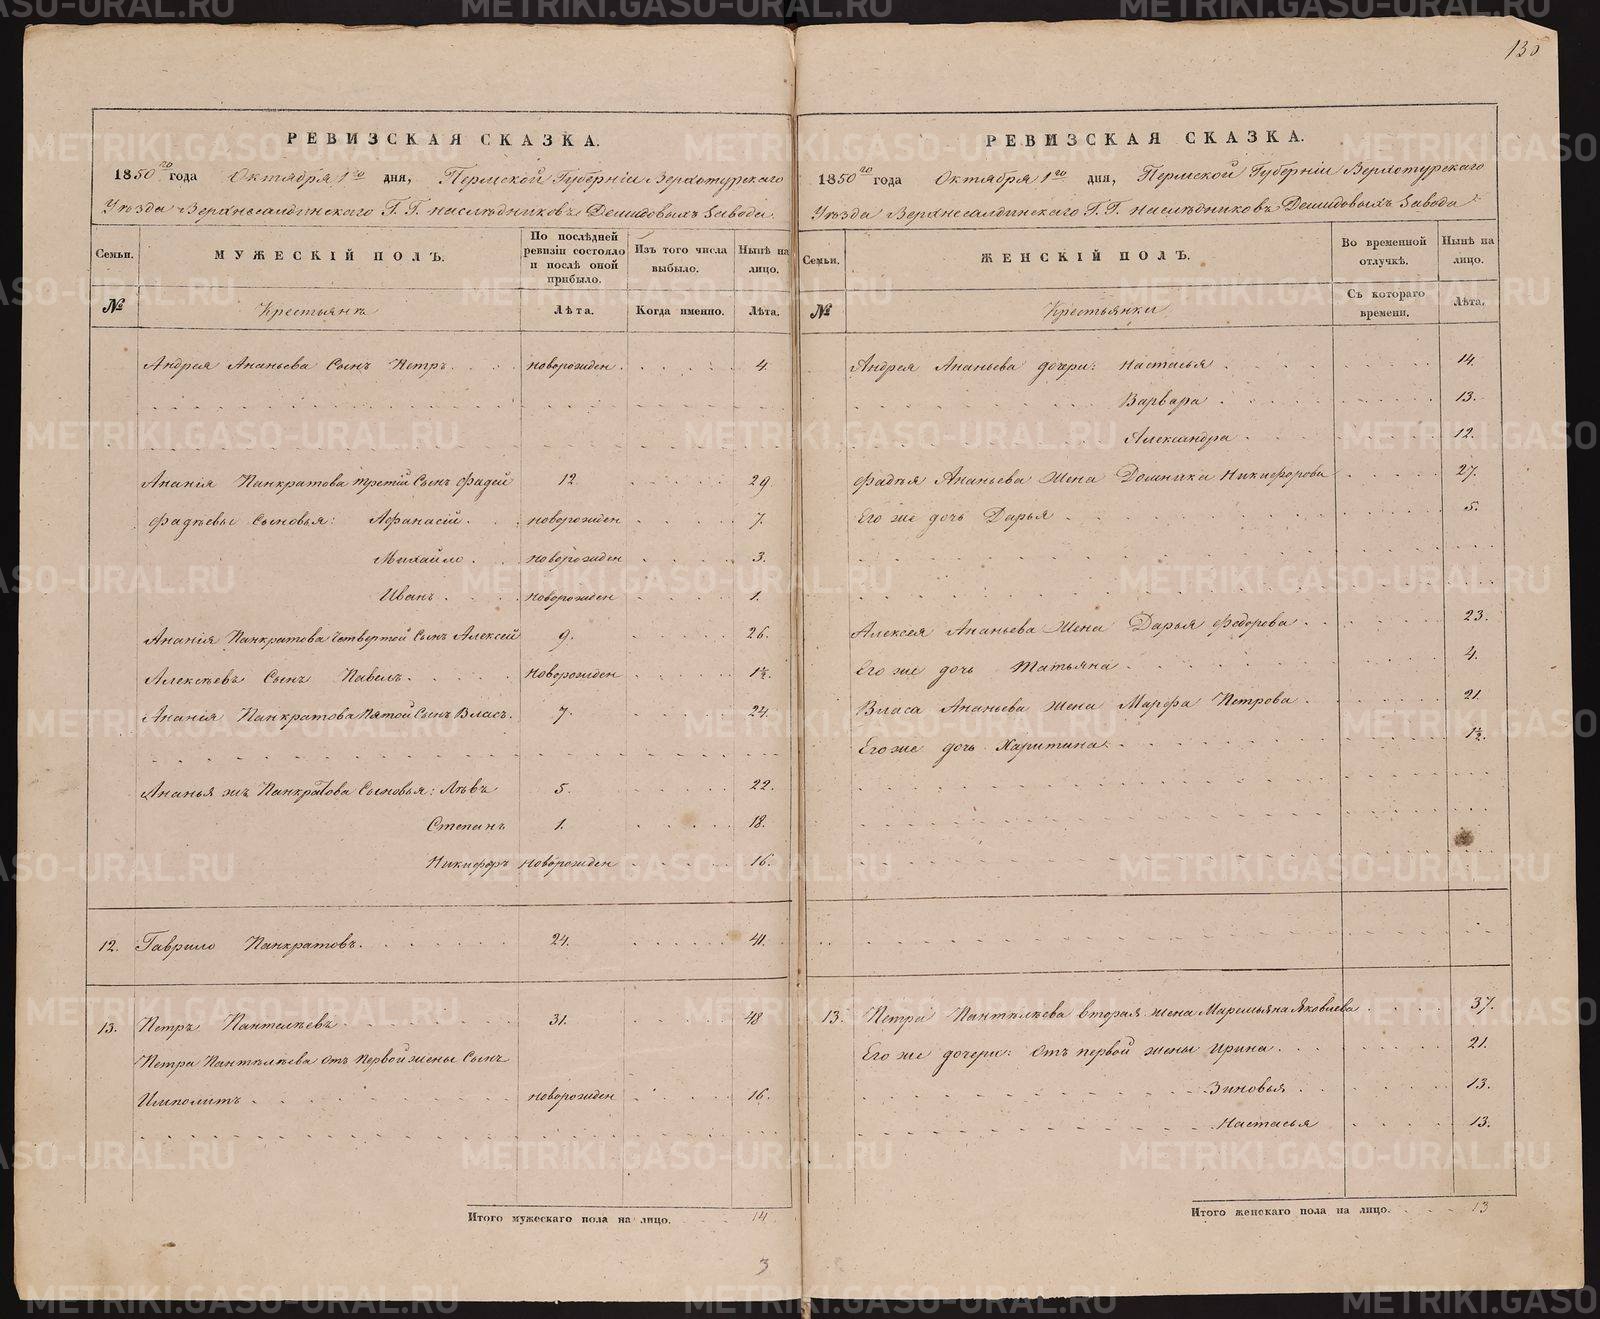 130
РЕВИЗСКАЯ СКАЗКА.
1850го года Октября 1го дня, Пермской Губерніи Верхотурскаго
Уѣзда Верхнесалдинскаго Г. Г. наслѣдниковъ Демидовыхъ завода
Семьи. МУЖЕСКІЙ ПОЛЪ. По послѣдней ревизіи состояло и послѣ оной прибыло. Изъ того числа выбыло. Нынѣ на лицо.
№ Крестьянъ Лѣта. Когда именно. Лѣта.
Андрея Ананьева Сынъ Петръ новорожден 4.
Ананія Панкратова третій Сынъ Фадей 12 29
Фадѣевы Сыновья: Афанасій новорожден 7.
Михайло новорожден 3.
Иванъ новорожден 1.
Ананія Панкратова четвертой Сынъ Алексей 9. 26.
Алексѣевъ Сынъ Павелъ новорожден 1½.
Ананія Панкратова Пятой Сынъ Власъ. 7. 24.
Ананья жъ Панкратова Сыновья: Лѣвъ 5. 22.
Степанъ 1. 18.
Никифоръ новорожден 16.
12. Гаврило Панкратовъ. 24. 41.
13. Петръ Пантелѣевъ 31. 48
Петра Пантелѣева отъ Первой жены Сынъ
Имполитъ новорожден 16.
Итого мужескаго пола на лицо. 14
3
РЕВИЗСКАЯ СКАЗКА.
1850го года Октября 1го дня, Пермской Губерніи Верхотурскаго
Уѣзда Верхнесалдинскаго Г. Г. наслѣдниковъ Демидовыхъ завода
Семьи. ЖЕНСКІЙ ПОЛЪ. Во временной отлучкѣ. Нынѣ на лицо.
№ Крестьянки Съ котораго времени. Лѣта.
Андрея Ананьева дочери: Настасья 14.
Варвара 13.
Александра 12.
Фадѣя Ананьева Жена Домника Никифорова 27.
Его же дочь Дарья 5.
Алексея Ананьева Жена Дарья Федорова 23.
Его же дочь Татьяна 4.
Власа Ананьева жена Марфа Петрова 21
Его же дочь Харитина 1½.
13. Петра Пантелѣева вторая жена Маремьяна Яковлева 37.
Его же дочери: отъ первой жены Ирина 21.
Зиновья 13.
Настасья 13.
Итого женскаго пола на лицо. 13
METRIKI.GASO-URAL.RU